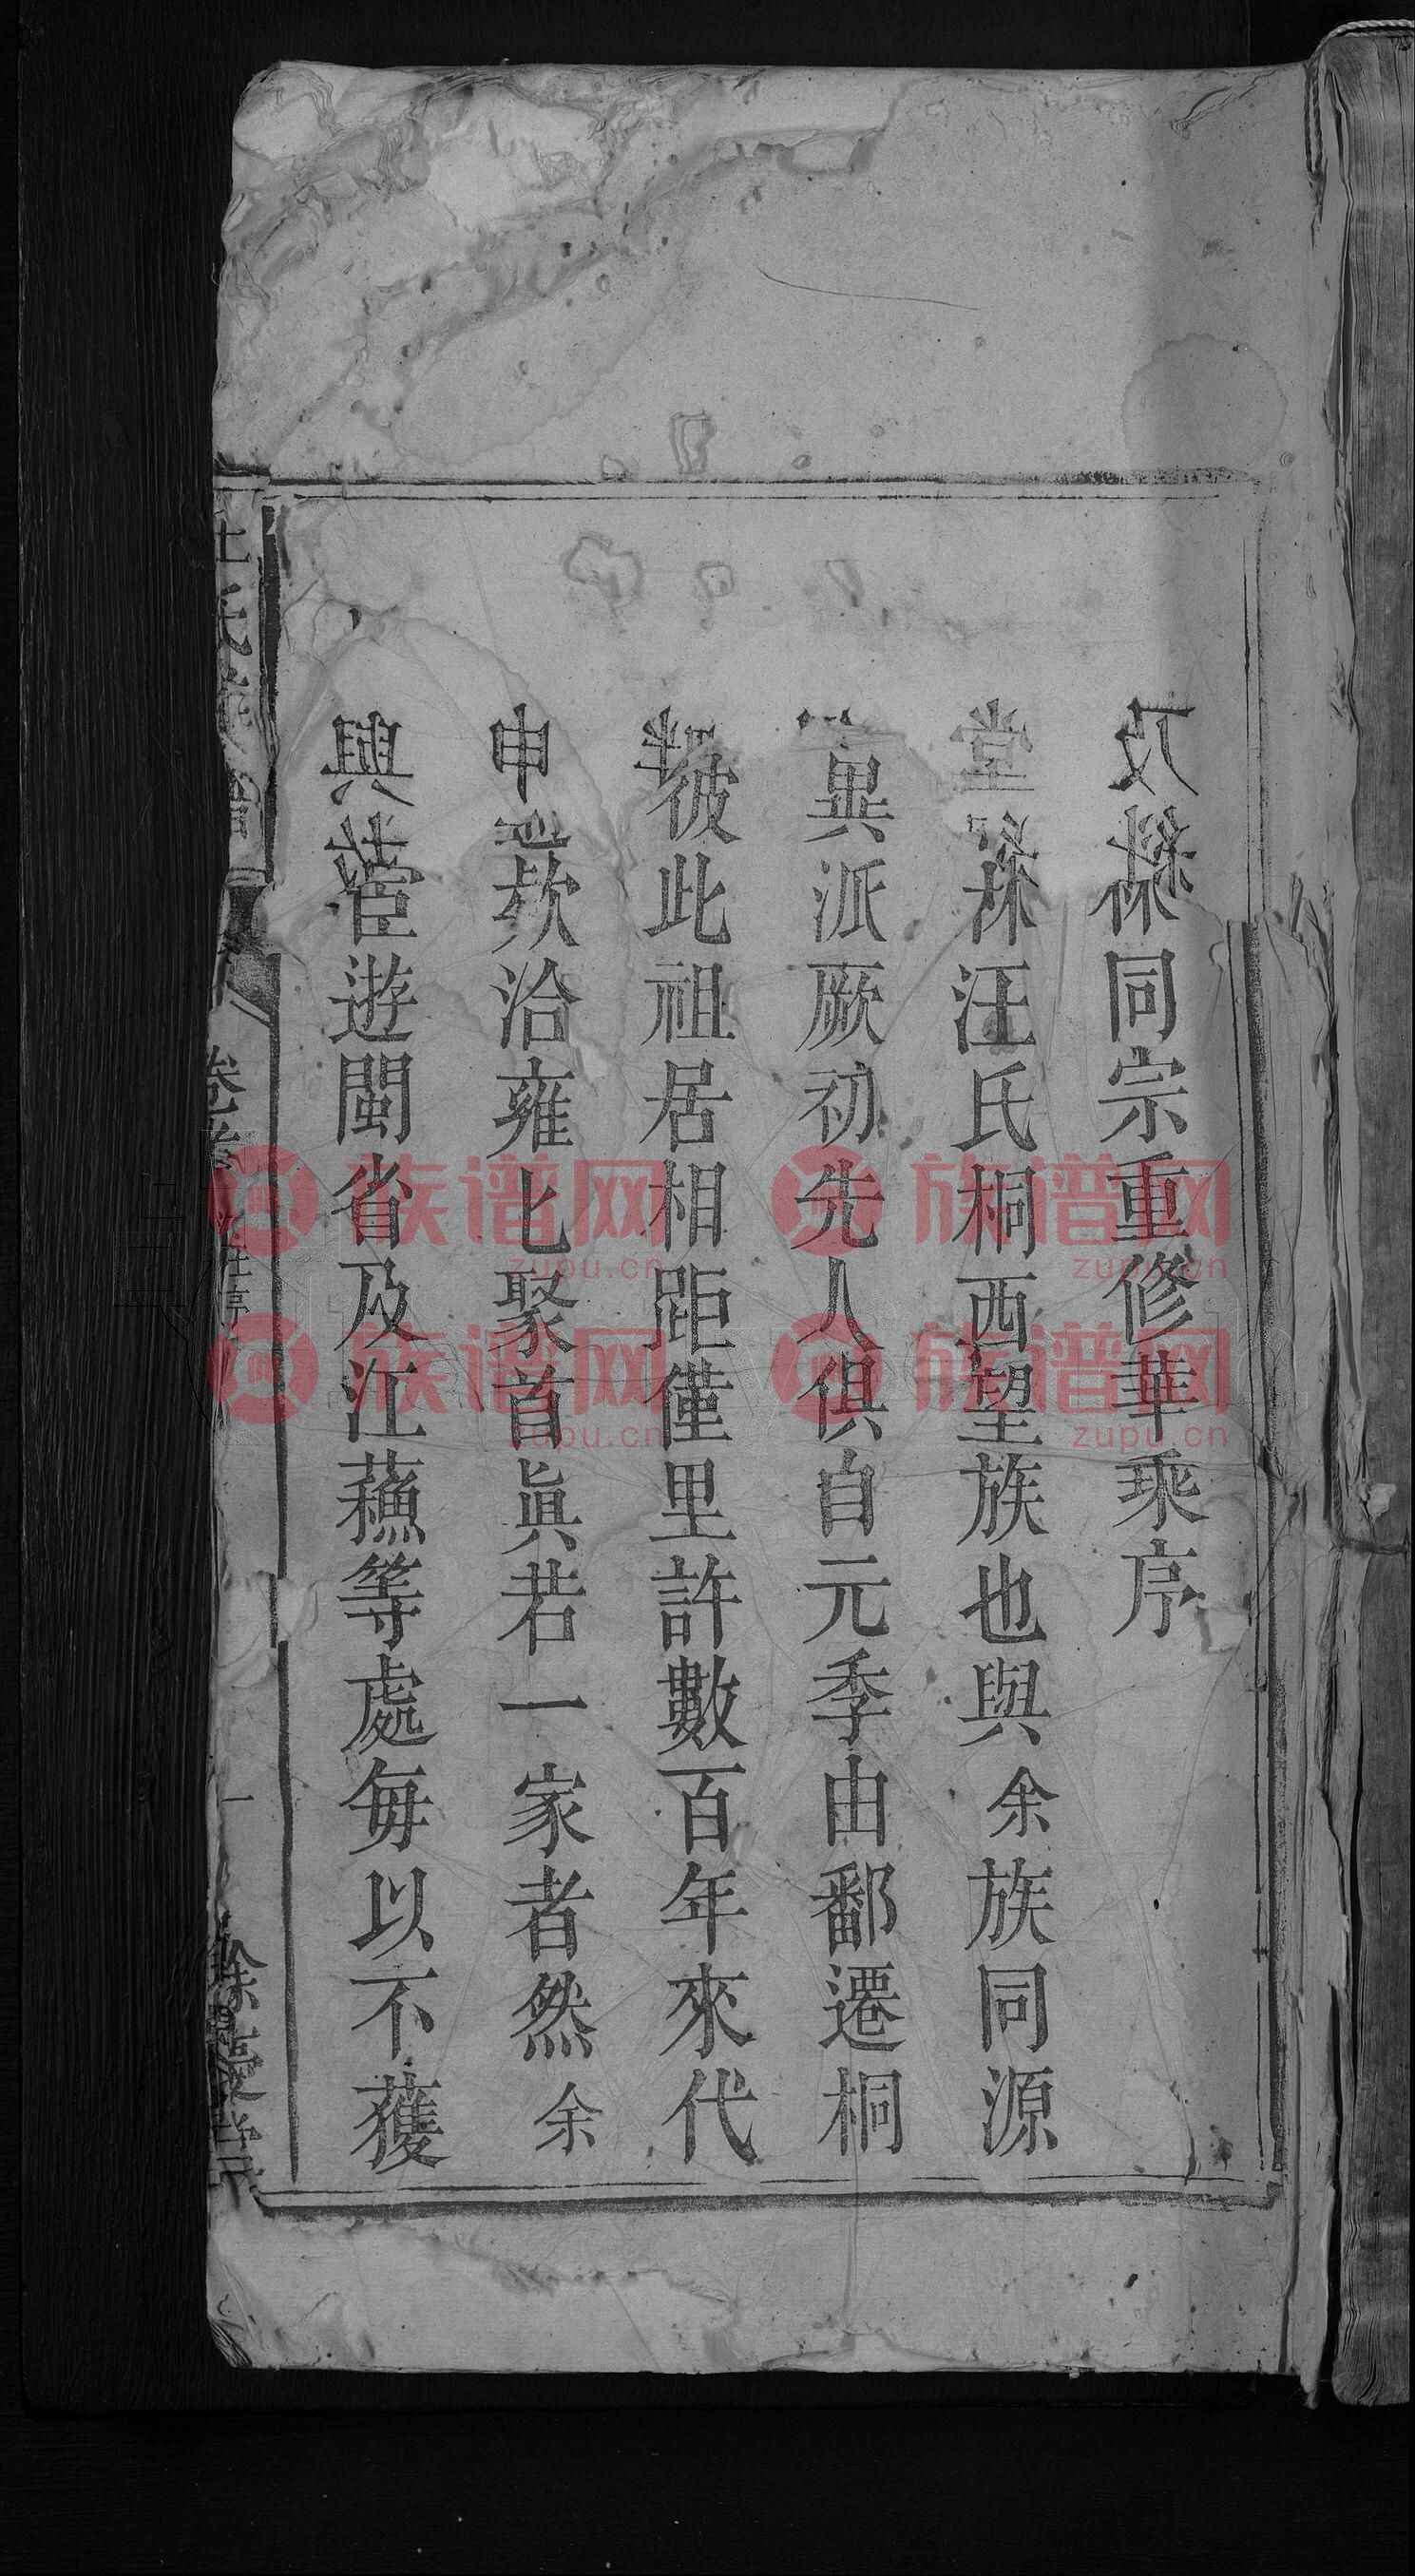 同宗重修華乘序
堂
汪氏桐西望族也與余族同源
異派厥初先人俱自元季由鄱遷桐
彼此祖居相距僅里許數百年來代
申
欵洽雍匕聚首眞若一家者然余
興
宦遊閩省及江蘓等處每以不獲
氏
卷
一
族谱网
zupu.cn
族谱网
zupu.cn
族谱网
zupu.cn
族谱网
zupu.cn